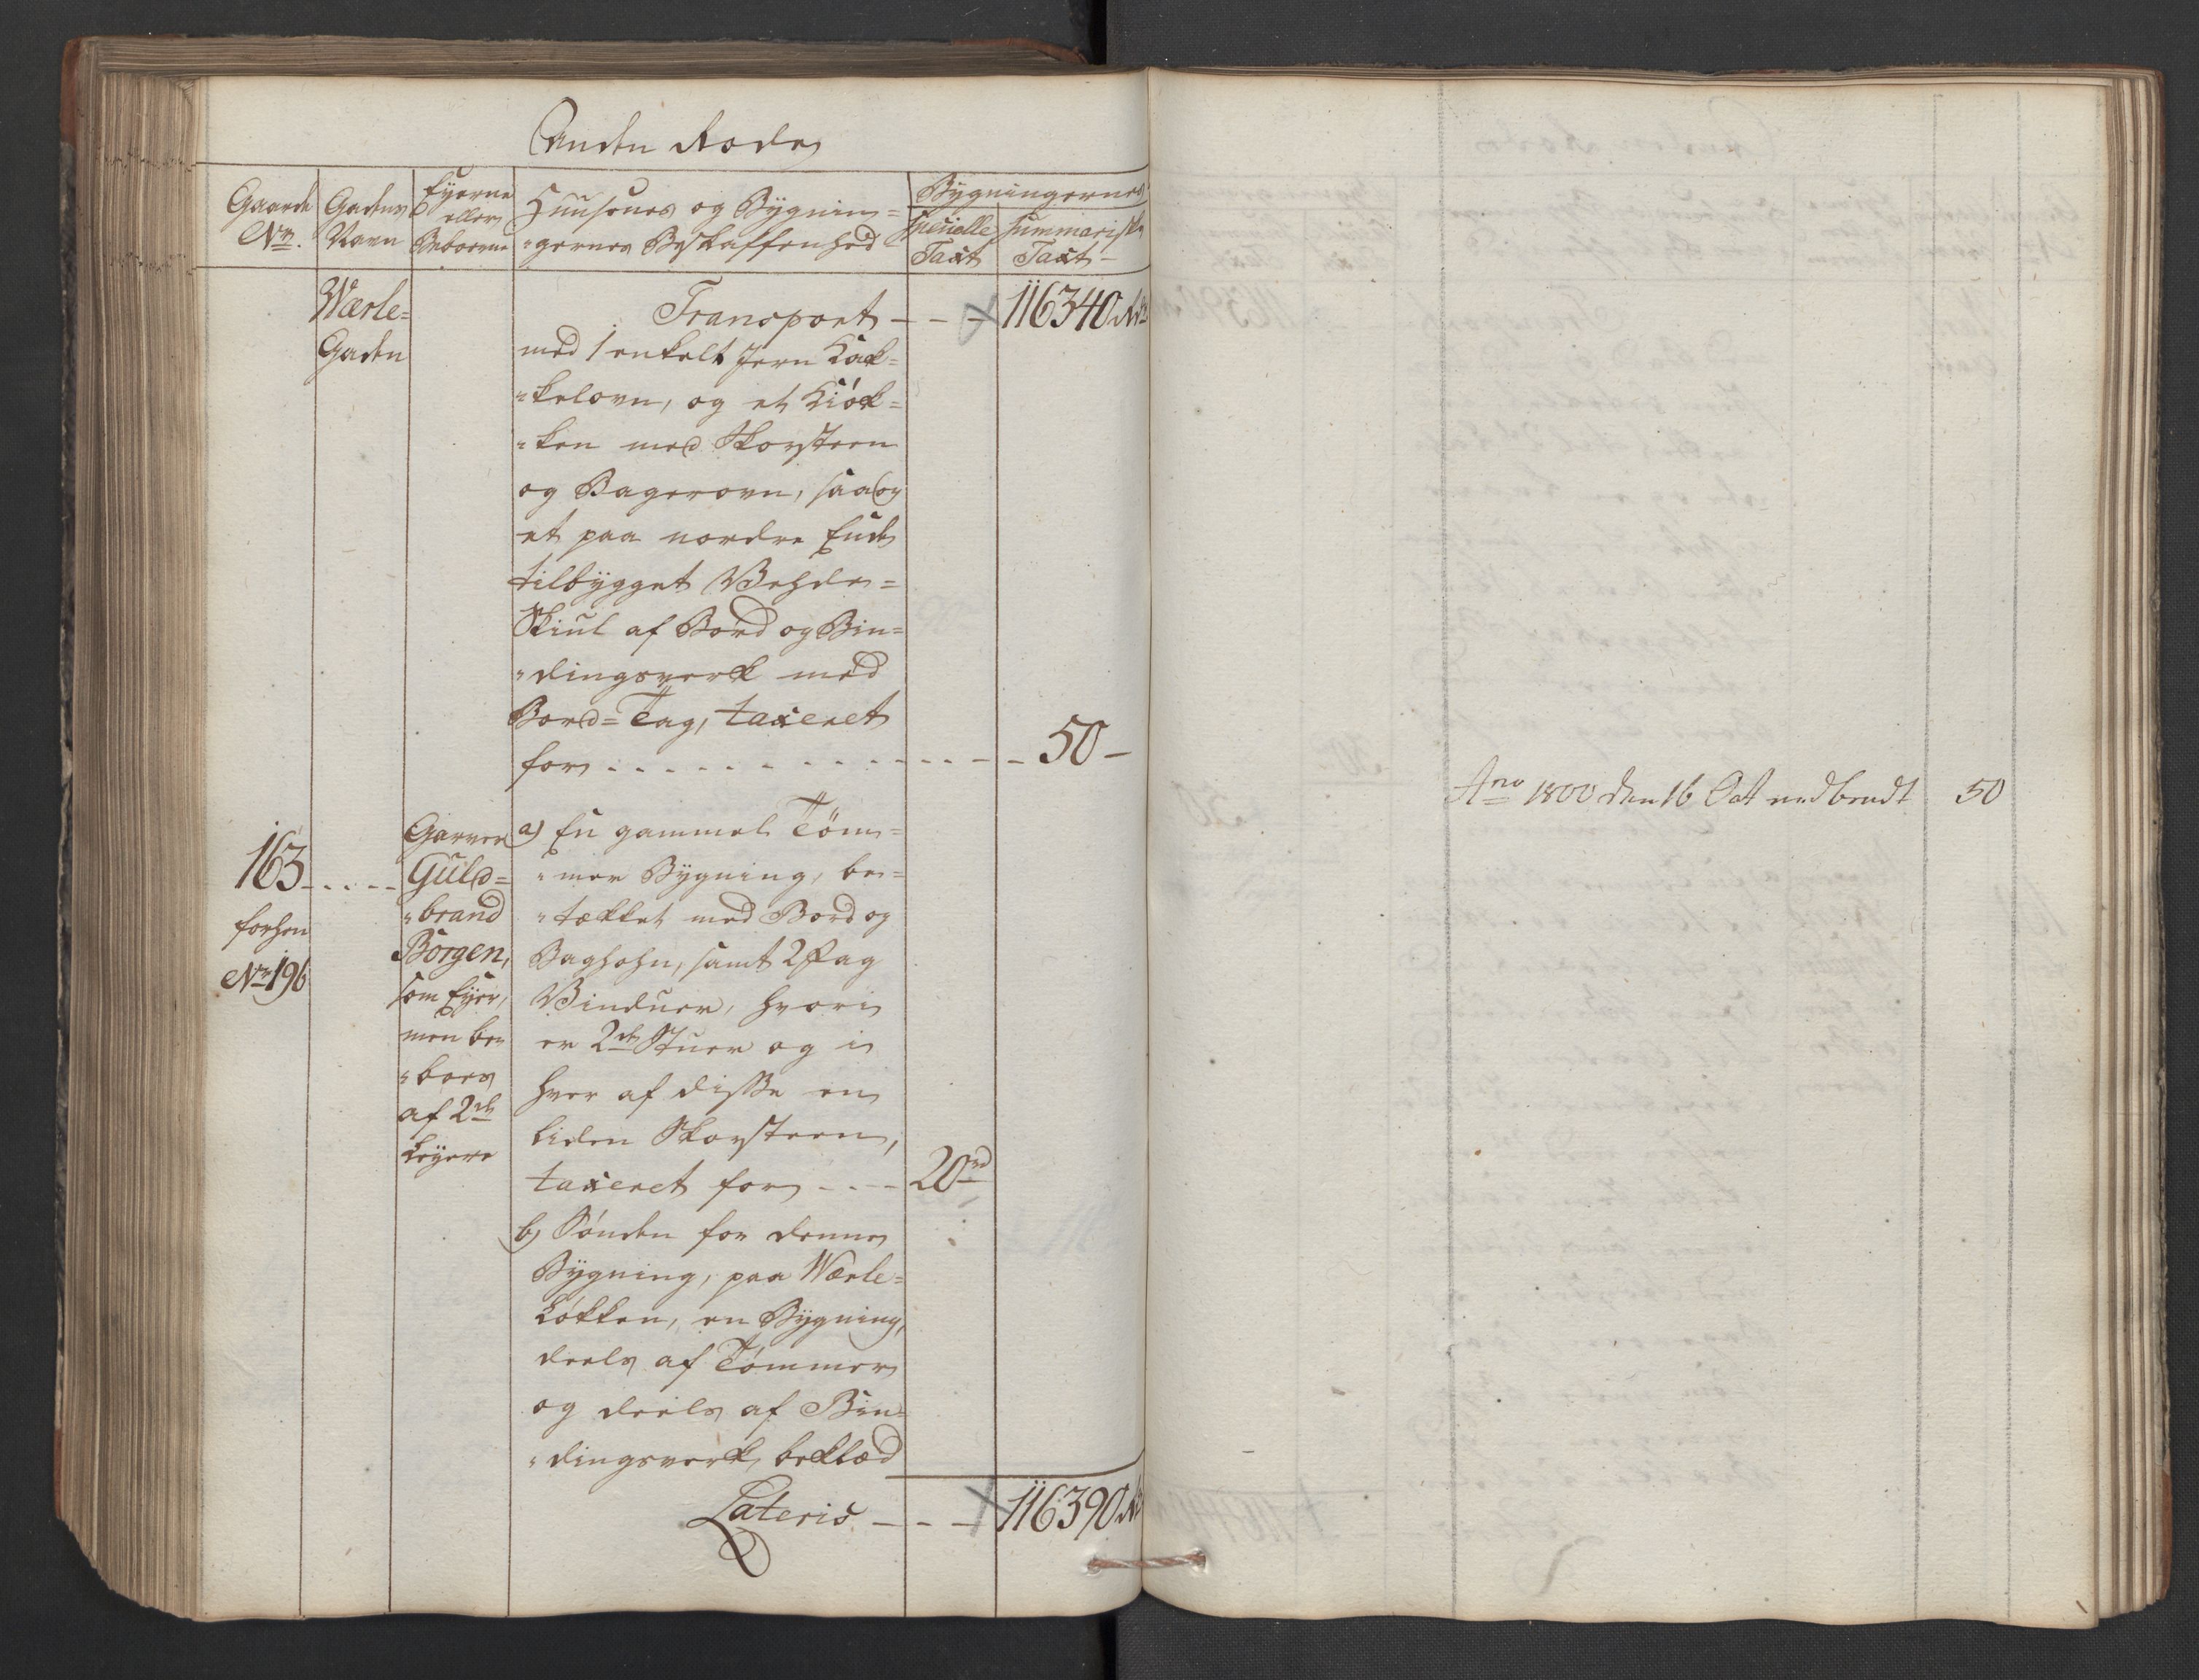 Anden Rode
Gaarde
No.
Gadens
Navn
Eyerne
eller
Beboerne
Huusenes og Bygnin=
"gernes Beskaffenhed
Bygningernes
specielle
Taxt
summariske
Taxt
Wærle=
Gaden
Transport - - - 116340 Rd
med 1 enkelt Jern Kak=
"kelovn, og et Kiøk=
"ken med Skorsteen
og Bagerovn, saa og
et paa nordre Ende
tilbygget Vehde=
Skiul af Bord og Bin=
"dingsverk med
Bord=Tag, taxeret
for - - - - - 50 -
163
forhen
No 196
Garver
Guld=
"brand
Borgen,
som Eyer,
men be=
"boes
af 2de
Leyere
a) En gammel Töm=
"mer Bygning, be=
"tækket med Bord og
Baghohn, samt 2 Fag
Vinduer, hvori
er 2de Stuer og i
hver af disse en
liden Skorsteen,
taxeret for - - - 20 rd
b) Sönden for denne
Bygning, paa Wærle=
Løkken, en Bygning,
deels af Tömmer
og deels af Bin=
"dingsverk, beklæd
Lateris - - - 116390 Rd
Ano 1800 den 16 Oct nedbrudt 50